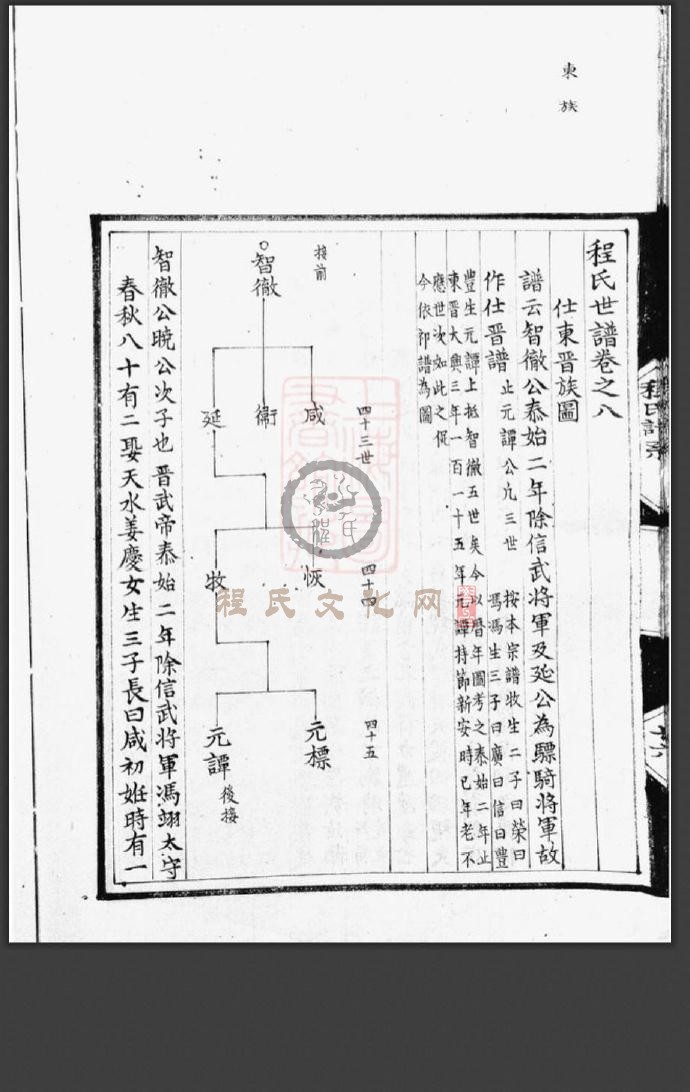 東族
程氏世譜卷之八
仕東晋族圖
譜云智徹公泰始二年除信武將軍及延公為驃騎將軍故
作仕晋譜
止元譚公凢三世
按本宗譜牧生二子曰榮曰
馮馮生三子曰廣曰信曰豐
豐生元譚上抵智徹五世矣今以曆年圖考之泰始二年止
東晋大興三年一百一十五年元譚持節新安時已年老不
應世次如此之促
今依祁譜為圖
接前
四十三世
四十四
四十五
智徹
咸
衛
延
恢
牧
元標
元譚
後接
智徹公曉公次子也晋武帝泰始二年除信武將軍馮翊太守
春秋八十有二娶天水姜慶女生三子長曰咸初姙時有一
程氏譜系
程氏文化网